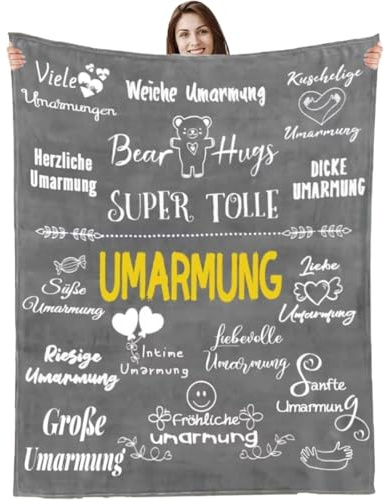 Viele
Umarmungen
Weiche Umarmung
Kuschelige
Umarmung
Bear Hugs
Herzliche
Umarmung
DICKE
UMARMUNG
SUPER TOLLE
UMARMUNG
Süße
Umarmung
Liebe
Umarmung
Intime
Umarmung
liebevolle
Umarmung
Riesige
Umarmung
Sanfte
Umarmung
Große
Umarmung
Fröhliche
umarmung